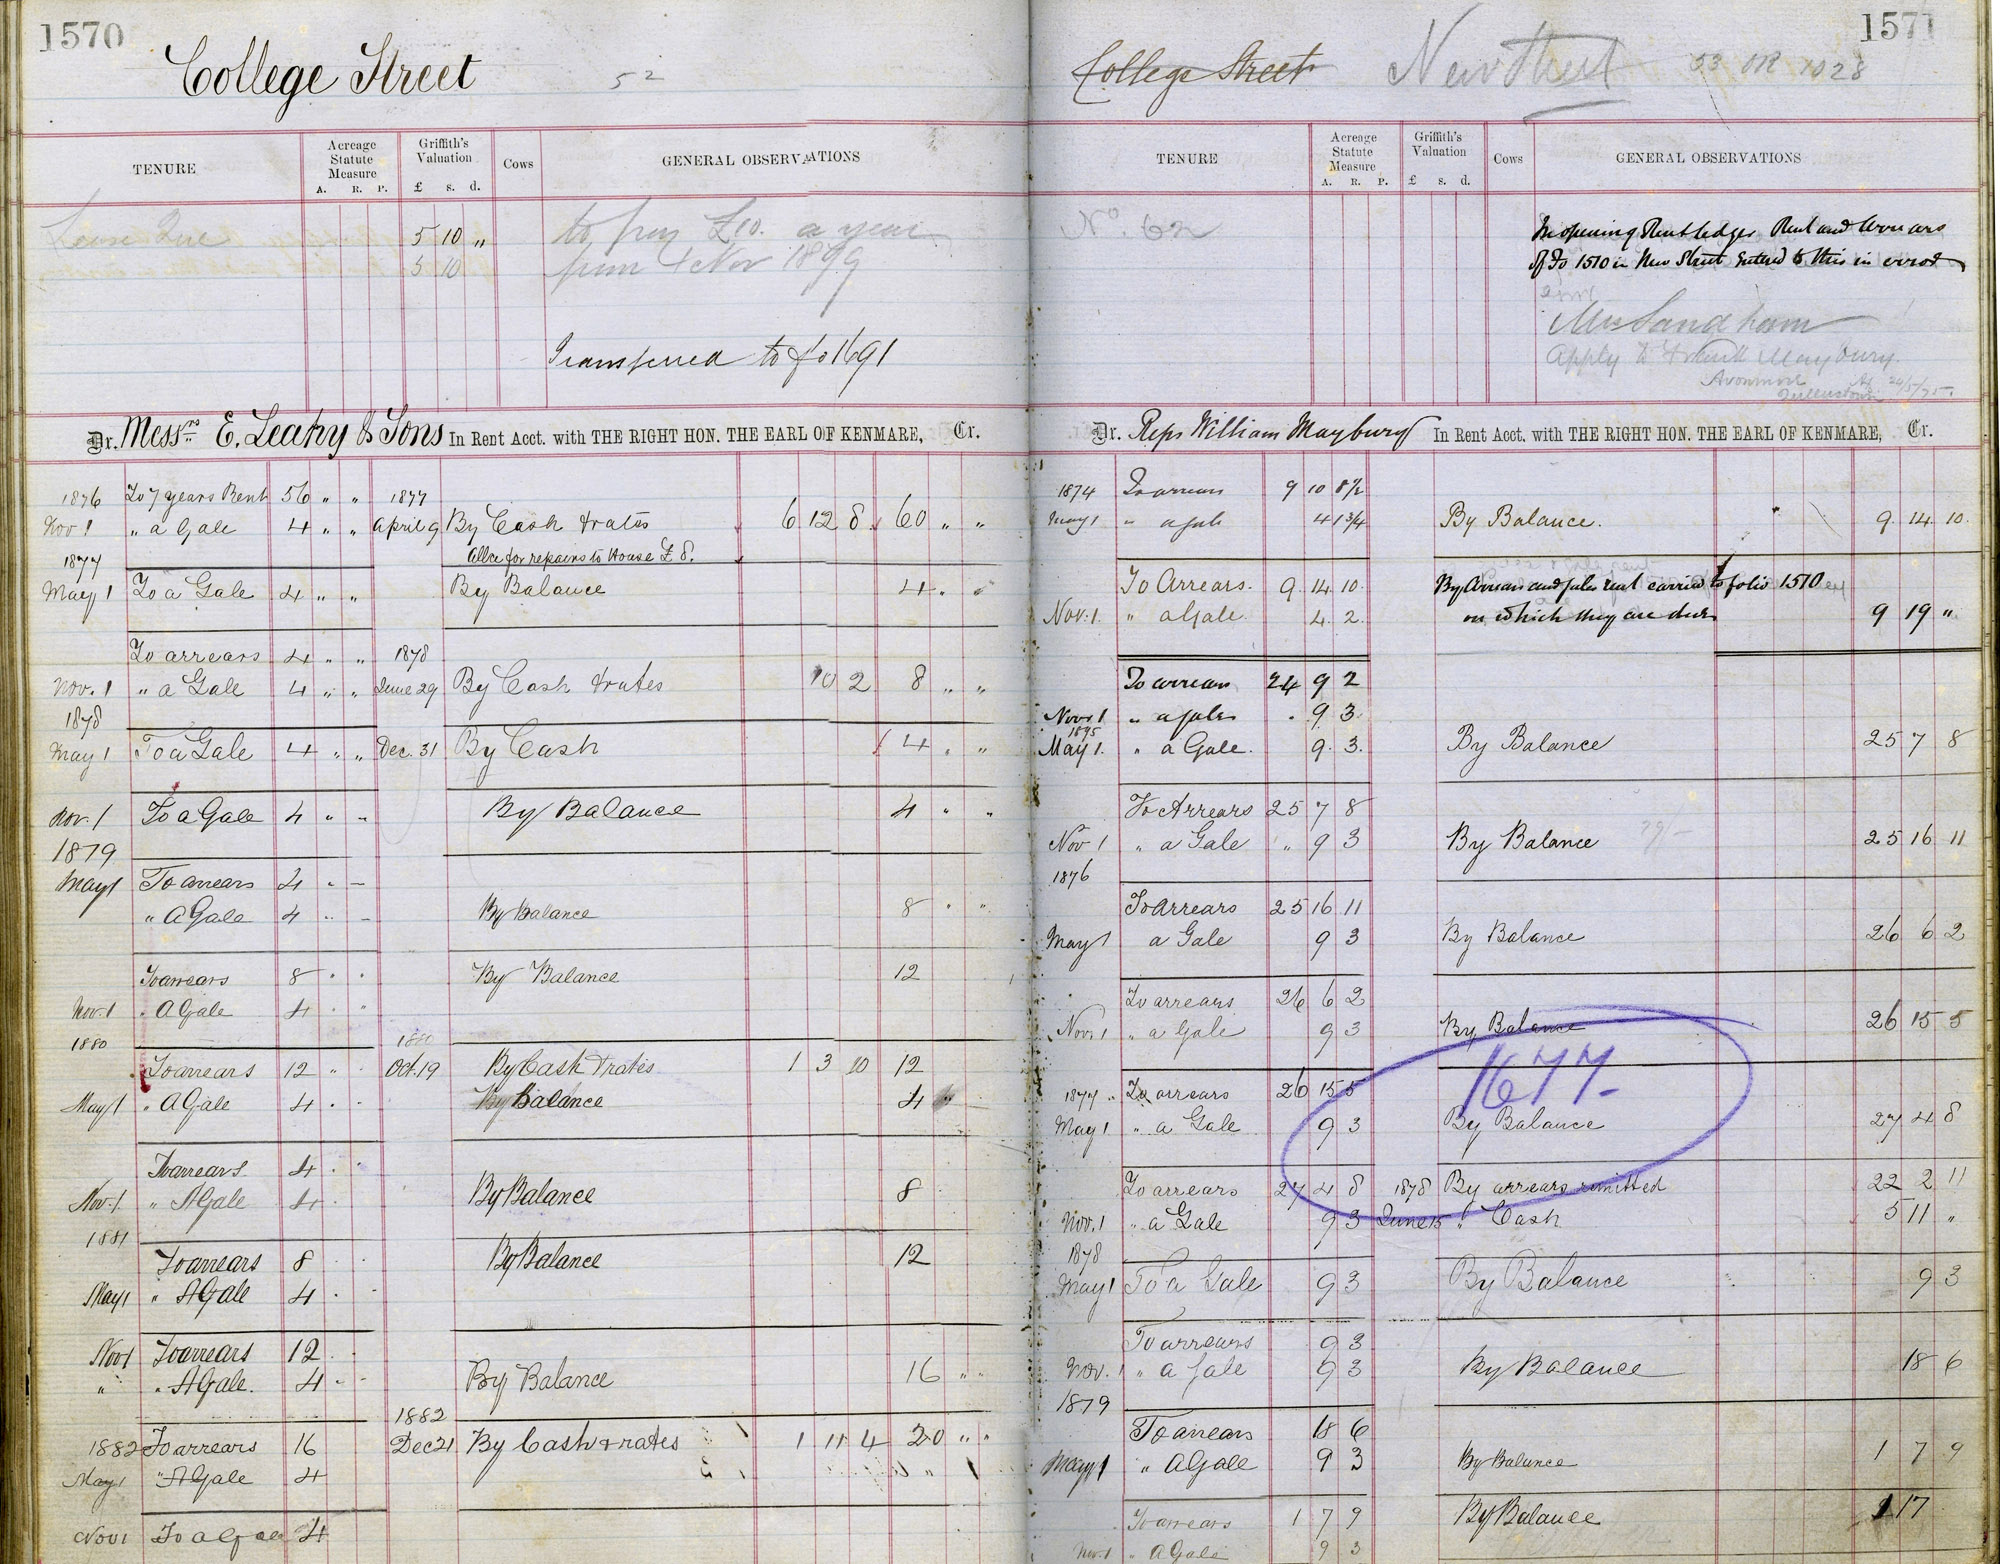 1570
College Street
52
TENURE
Acreage Statute Measure
A. R. P.
Griffith's Valuation
£ s. d.
Cows
GENERAL OBSERVATIONS
Lease Due 5 10 „ to pay £10. a year
5 10 from 1 Nov 1899
Transferred to fo 1691
Dr. Messrs E. Leahy & Sons In Rent Acct. with THE RIGHT HON. THE EARL OF KENMARE, Cr.
1876 To 7 years Rent 56 „ „ 1877
Nov 1 „ a Gale 4 „ „ April 9 By Cash & rates 6 12 8 60 „ „
1877 Allce for repairs to House £8.
May 1 To a Gale 4 „ „ By Balance 4 „ „
To arrears 4 „ „ 1878
Nov. 1 „ a Gale 4 „ „ June 29 By Cash & rates 10 2 8 „ „
1878
May 1 To a Gale 4 „ „ Dec. 31 By Cash 4 „ „
Nov. 1 To a Gale 4 „ „ By Balance 4 „ „
1879
May 1 To arrears 4 „ –
„ A Gale 4 „ – By Balance 8 „ „
To arrears 8 „ „ By Balance 12
Nov. 1 „ A Gale 4 „ „
1880 1880
To arrears 12 „ „ Oct. 19 By Cash & rates 1 3 10 12
May 1 „ A Gale 4 „ „ By Balance 4 „
To arrears 4 „ „
Nov. 1. „ A Gale 4 „ By Balance 8
1881
To arrears 8 „ „ By Balance 12
May 1 „ A Gale 4 „
Nov 1 To arrears 12
„ „ A Gale. 4 „ „ By Balance 16 „ „
1882
1882 To arrears 16 Dec 21 By Cash & rates 1 11 4 20 „ „
May 1 „ A Gale 4
Nov 1 To a Gale 4
1571
College Street New Street 53 OR 1028
TENURE
Acreage Statute Measure
A. R. P.
Griffith's Valuation
£ s. d.
Cows
GENERAL OBSERVATIONS
No. 62
In opening Rent Ledger Rent and Arrears
of Fo 1510 in New Street Entered to this in error
Mrs Sandham
Apply to Frank Maybury.
Avonmore
Queenstown 24/5/75.
Dr. Reps William Maybury In Rent Acct. with THE RIGHT HON. THE EARL OF KENMARE, Cr.
1874 To arrears 9 10 8½
May 1 „ a gale 4 1¾ By Balance. 9. 14. 10.
To Arrears. 9. 14. 10. By Arrears and gales rent carried to folio 1510
Nov. 1. „ a Gale. 4. 2. on which they are due 9 19 „
To arrears 24 9 2
Nov 1 „ a gale . 9 3.
1875
May 1. „ a Gale. 9. 3. By Balance 25 7 8
To Arrears 25 7 8
Nov 1 „ a Gale „ 9 3 By Balance 25 16 11
1876
To Arrears 25 16 11
May 1 a Gale 9 3 By Balance 26 6 2
To arrears 26 6 2
Nov. 1 „ a Gale 9 3 By Balance 26 15 5
1677
1877 To arrears 26 15 5
May 1 „ a Gale 9 3 By Balance 27 4 8
To arrears 27 4 8 1878 By arrears remitted 22 2 11
Nov. 1 „ a Gale 9 3 June 15 „ Cash 5 11 „
1878
May 1 To a Gale 9 3 By Balance 9 3
To arrears 9 3
Nov. 1 „ a gale 9 3 By Balance 18 6
1879
To arrears 18 6
May 1 „ A Gale 9 3 By Balance 1 7 9
To arrears 1 7 9 By Balance 1 17
Nov. 1 „ A Gale 9 3